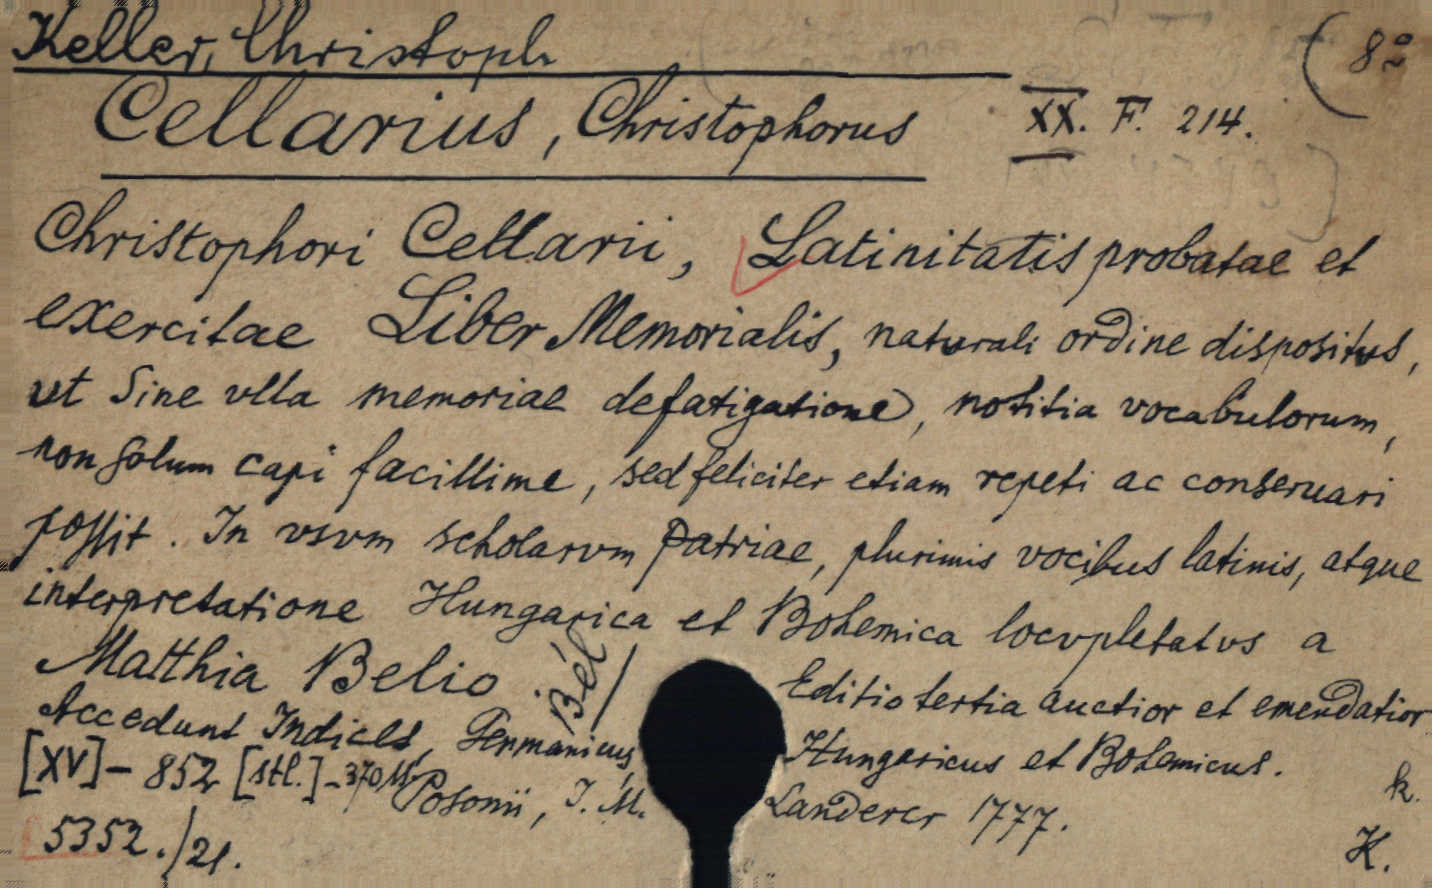 Keller, Christoph.
(8º
Cellarius, Christophorus
XX. F. 214.
Christophori Cellarii, Latinitatis probatae et
exercitae Liber Memorialis, naturali ordine dispositus,
ut sine vlla memoriae defatigatione, notitia vocabulorum,
non solum capi facillime, sed feliciter etiam repeti ac conseruari
possit. In vsvm scholarvm Patriae, plurimis vocibus latinis, atque
interpretatione Hungarica et Bohemica locvpletatvs a
Matthia Belio Bél/ Editio tertia auctior et emendatior
Accedunt Indices, Germanicus Hungaricus et Bohemicus.
[XV]-852 [stl.]-370 Posonii, J. M. Landerer 1777.
k.
5352./21.
K.